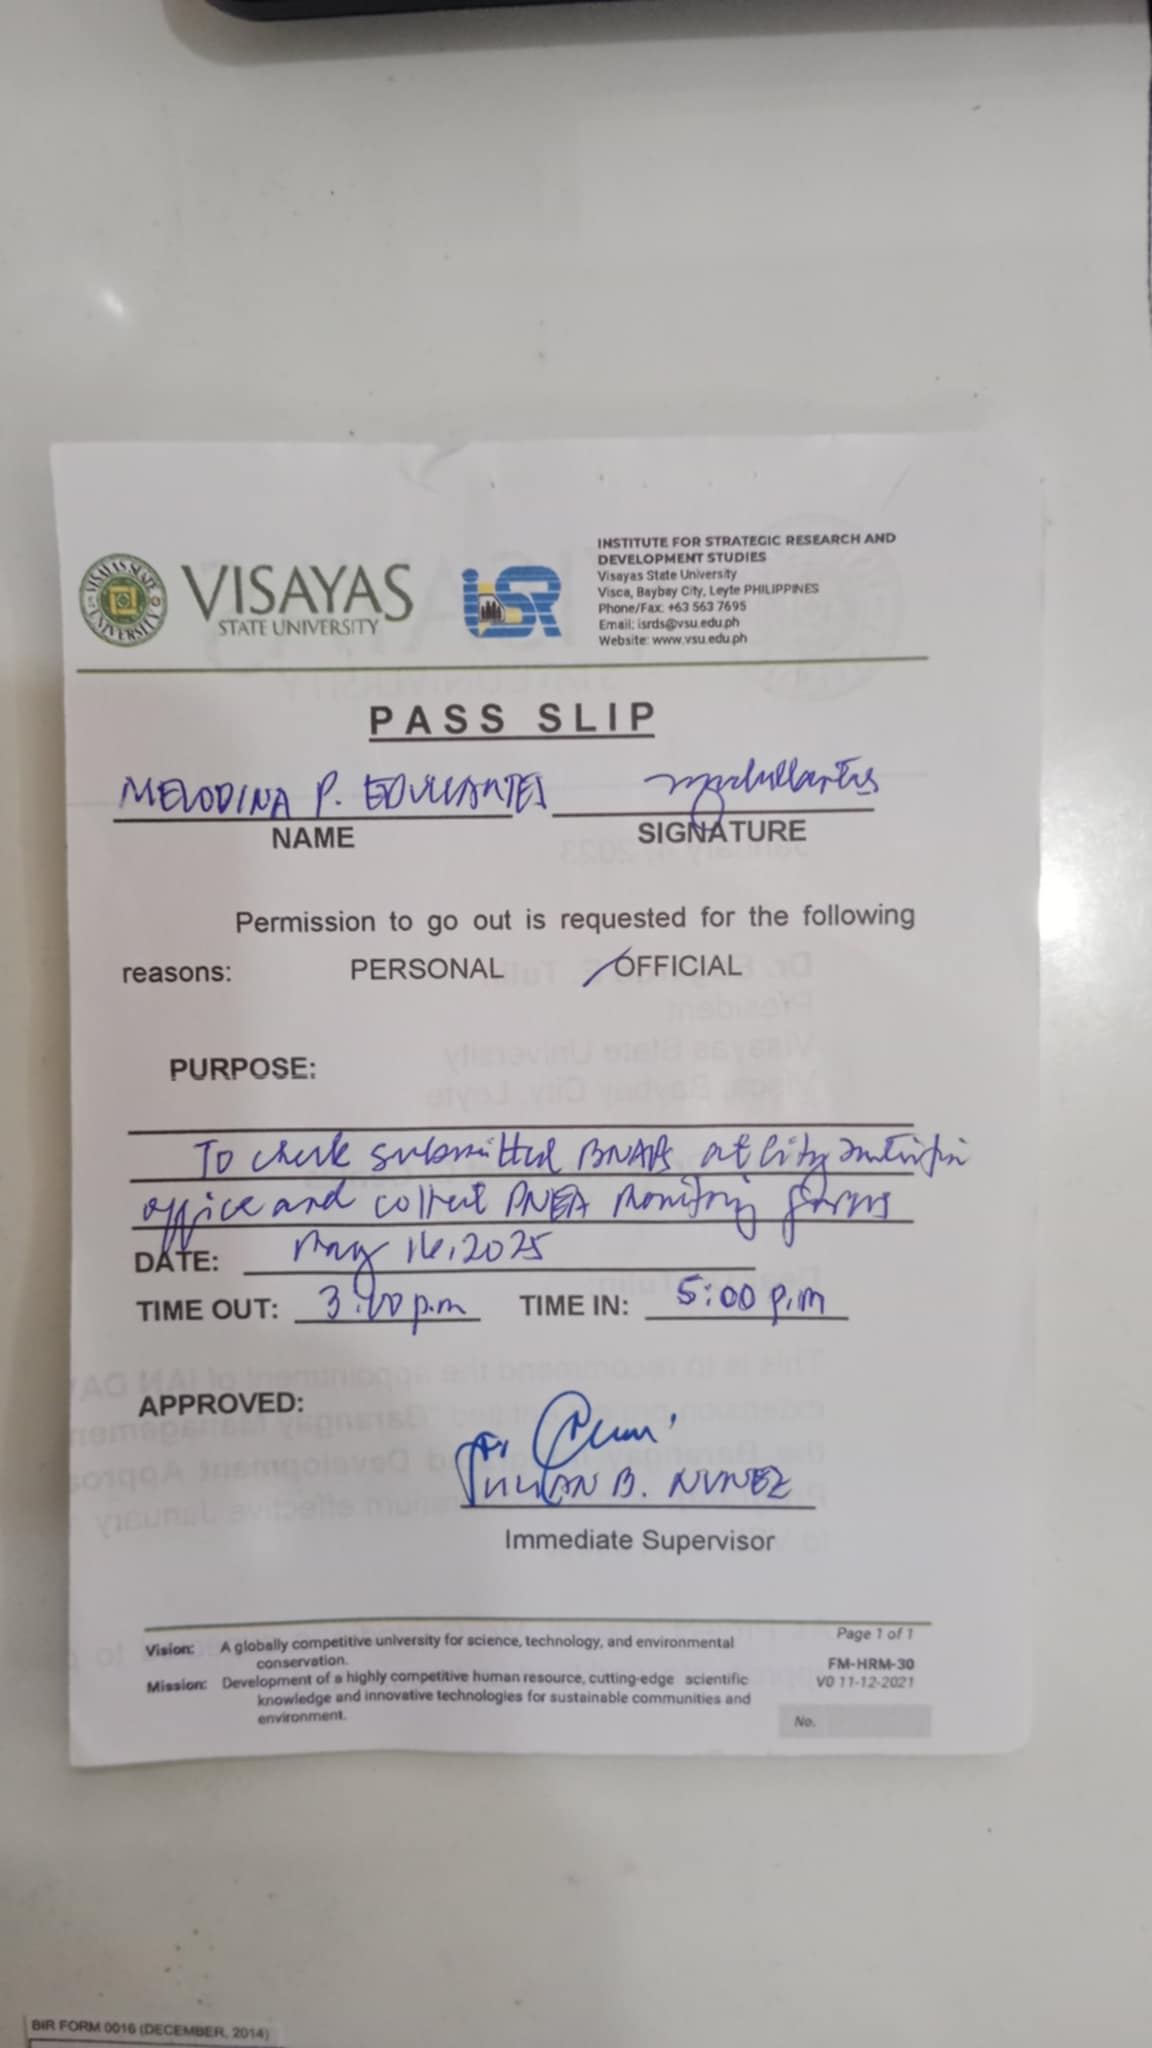 VISAYAS
STATE UNIVERSITY
VISAYAS STATE UNIVERSITY
iSR
INSTITUTE FOR STRATEGIC RESEARCH AND
DEVELOPMENT STUDIES
Visayas State University
Visca, Baybay City, Leyte PHILIPPINES
Phone/Fax: +63 563 7695
Email: isrds@vsu.edu.ph
Website: www.vsu.edu.ph
PASS SLIP
MELODINA P.
NAME SIGNATURE
Permission to go out is requested for the following
reasons: PERSONAL OFFICIAL
PURPOSE:
To check submitted at City
office and collect monitoring forms
DATE: May 16, 2025
TIME OUT: p.m TIME IN: 5:00 p.m
APPROVED:
JULIAN B. NUNEZ
Immediate Supervisor
Vision: A globally competitive university for science, technology, and environmental
conservation.
Mission: Development of a highly competitive human resource, cutting-edge scientific
knowledge and innovative technologies for sustainable communities and
environment.
Page 1 of 1
FM-HRM-30
V0 11-12-2021
No.
BIR FORM 0016 (DECEMBER, 2014)